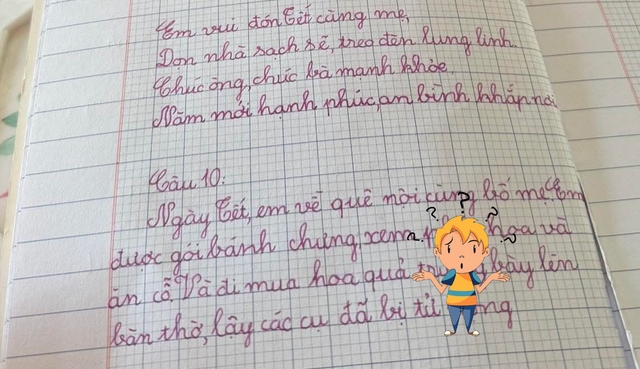 Em vui đón Tết cùng mẹ,
Dọn nhà sạch sẽ, treo đèn lung linh.
Chúc ông, chúc bà mạnh khỏe
Năm mới hạnh phúc, an bình khắp nơi
Câu 10:
Ngày Tết, em về quê nội cùng bố mẹ. Em
được gói bánh chưng, xem hoa và
ăn cỗ. Và đi mua hoa quả bày lên
bàn thờ, lậy các cụ đã bị tử